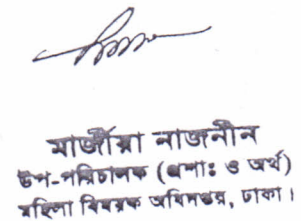 মার্জীয়া নাজনীন
উপ-পরিচালক (প্রশাঃ ও অর্থ)
মহিলা বিষয়ক অধিদপ্তর, ঢাকা।